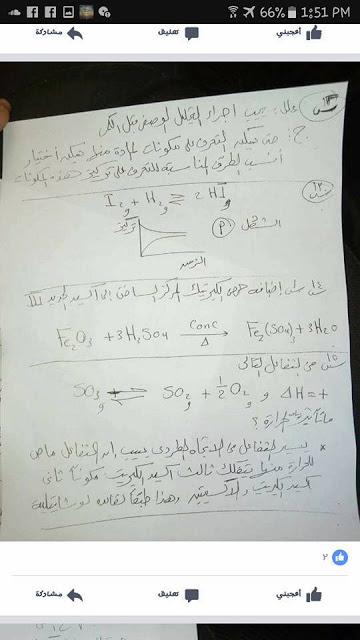 66% 1:51 PM
أعجبني تعليق مشاركة
علل: يجب اجراء التحليل الوصفى قبل الكمى
ج: حتى يمكنه التعرف على مكونات المادة مما يمكنه أختيار
أنسب الطرق المناسبة للتعرف على تركيز هذه المكونات
س١٣
I₂ + H₂ ⇌ 2HI
الشكل
تركيز
الزمن
س١٤ إضافة حمض الكبريتيك المركز الساخن إلى أكسيد الحديد III
Fe₂O₃ + 3H₂SO₄ Conc Δ → Fe₂(SO₄)₃ + 3H₂O
س١٥ من التفاعل التالى
SO₃ ⇌ SO₂ + ½O₂ و ΔH = +
ما تأثير الحرارة ؟
* يسير التفاعل فى الاتجاه الطردى بسبب ان التفاعل ماص
للحرارة يتفكك ثالث اكسيد الكبريت مكوناً ثانى
اكسيد الكبريت والاكسجين وهذا طبقاً لقاعدة لوشاتيليه
٢
أعجبني تعليق مشاركة